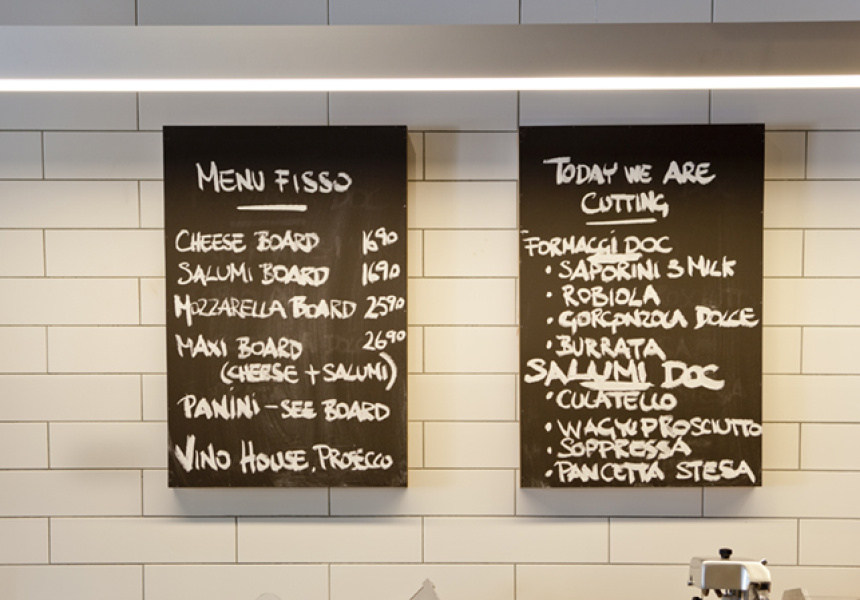 MENU FISSO
CHEESE BOARD 16⁹⁰
SALUMI BOARD 16⁹⁰
MOZZARELLA BOARD 25⁹⁰
MAXI BOARD 26⁹⁰
(CHEESE + SALUMI)
PANINI - SEE BOARD
VINO HOUSE, PROSECCO
TODAY WE ARE
CUTTING
FORMAGGI DOC
• SAPORINI 3 MILK
• ROBIOLA
• GORGONZOLA DOLCE
• BURRATA
SALUMI DOC
• CULATELLO
• WAGYU PROSCIUTTO
• SOPPRESSA
• PANCETTA STESA